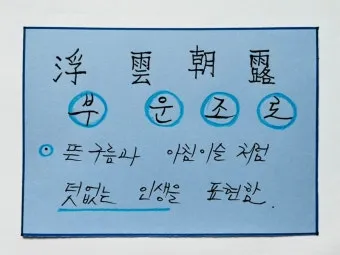 浮 雲 朝 露
부 운 조 로
뜬구름과 아침이슬 처럼
덧없는 인생을 표현함.